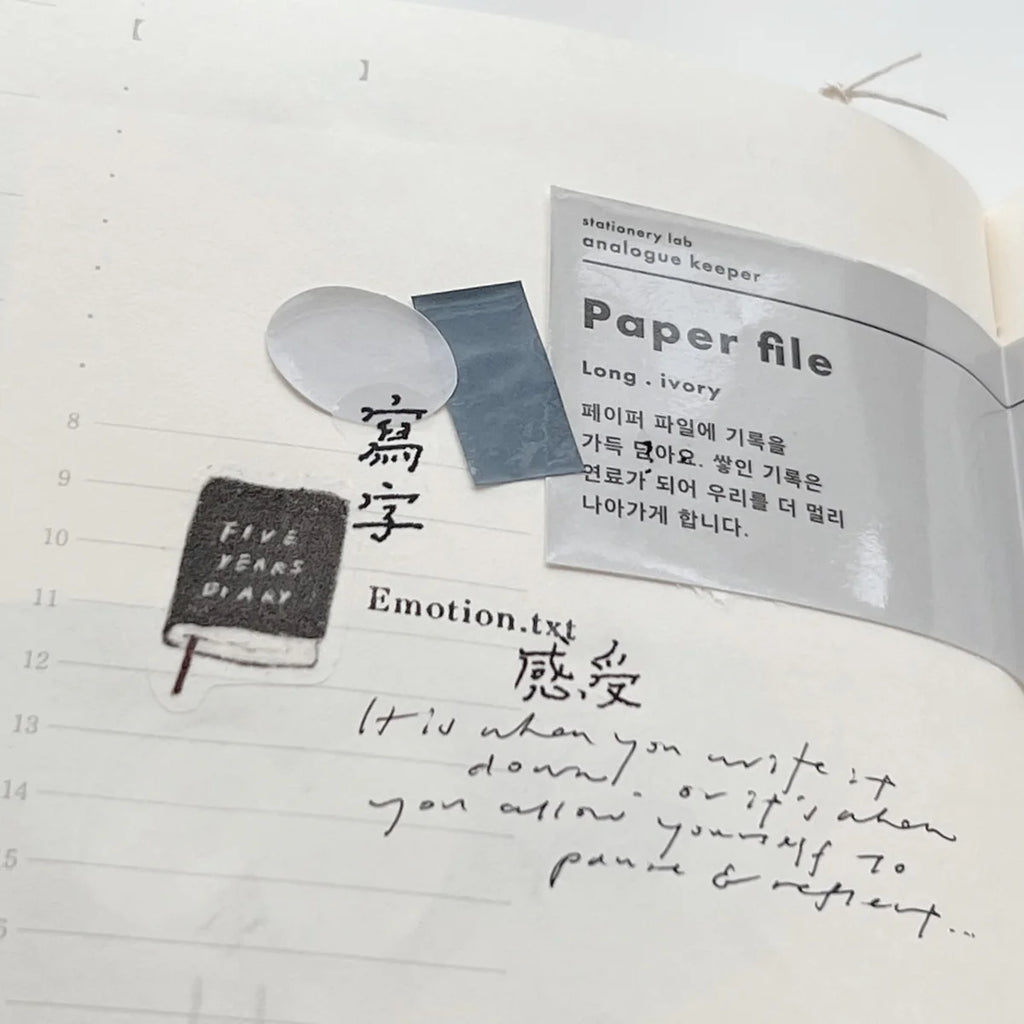 【
】
stationery lab
analogue keeper
Paper file
Long . ivory
페이퍼 파일에 기록을
가득 담아요. 쌓인 기록은
연료가 되어 우리를 더 멀리
나아가게 합니다.
寫
字
FIVE
YEARS
DIARY
Emotion.txt
感受
It is when you write it
down, or it's when
you allow yourself to
pause & reflect...
8
9
10
11
12
13
14